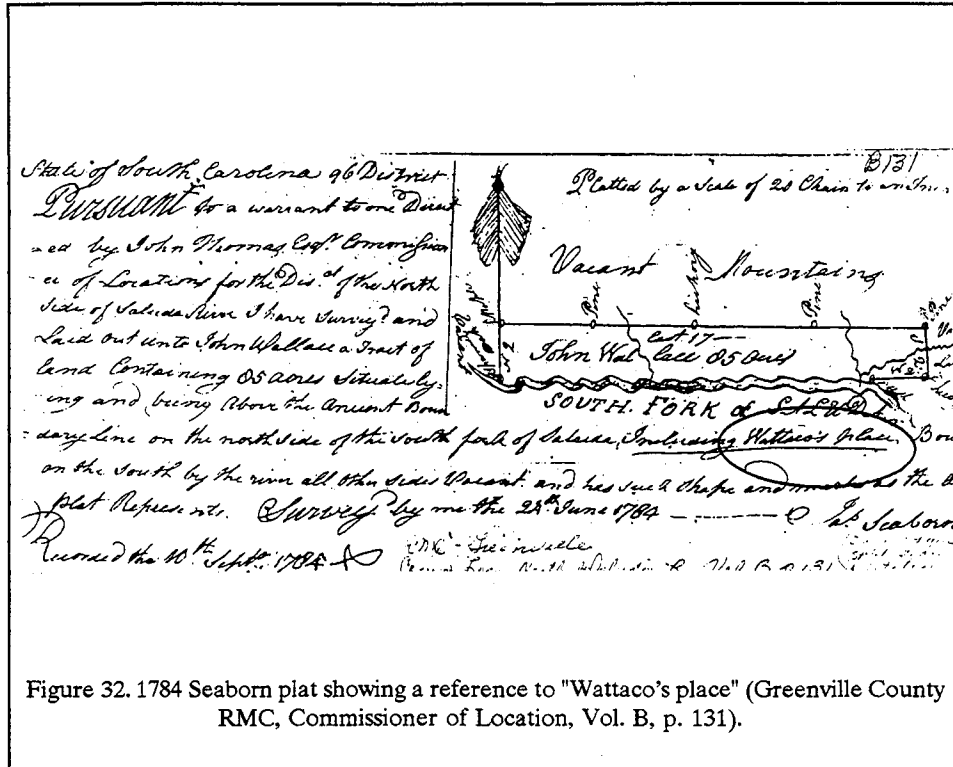 B131
State of South Carolina 96 District
Pursuant to a warrant to me Direct
-ed by John Thomas Esqr. Commission
er of Locations for the Dis.ct of the North
Side of Saluda River I have Survey.d and
Laid out unto John Wallace a Tract of
land Containing 85 acres Situate ly-
ing and being Above the Ancient Boun
dary Line on the north side of the south fork of Saluda Including Wattaco's place Bou
on the South by the river all other sides Vacant and has such shape and marks as the
plat Represents. Survey'd by me the 24th June 1784 Jas. Seaborn
Recorded the 10th Sept. 1784
RMC Greenville
Vol B p 131
Platted by a Scale of 20 Chain to an Inch
Vacant Mountains
Pine
hickory
Pine
East 17
John Wallace 85 acres
SOUTH. FORK of SALUDA
Figure 32. 1784 Seaborn plat showing a reference to "Wattaco's place" (Greenville County
RMC, Commissioner of Location, Vol. B, p. 131).